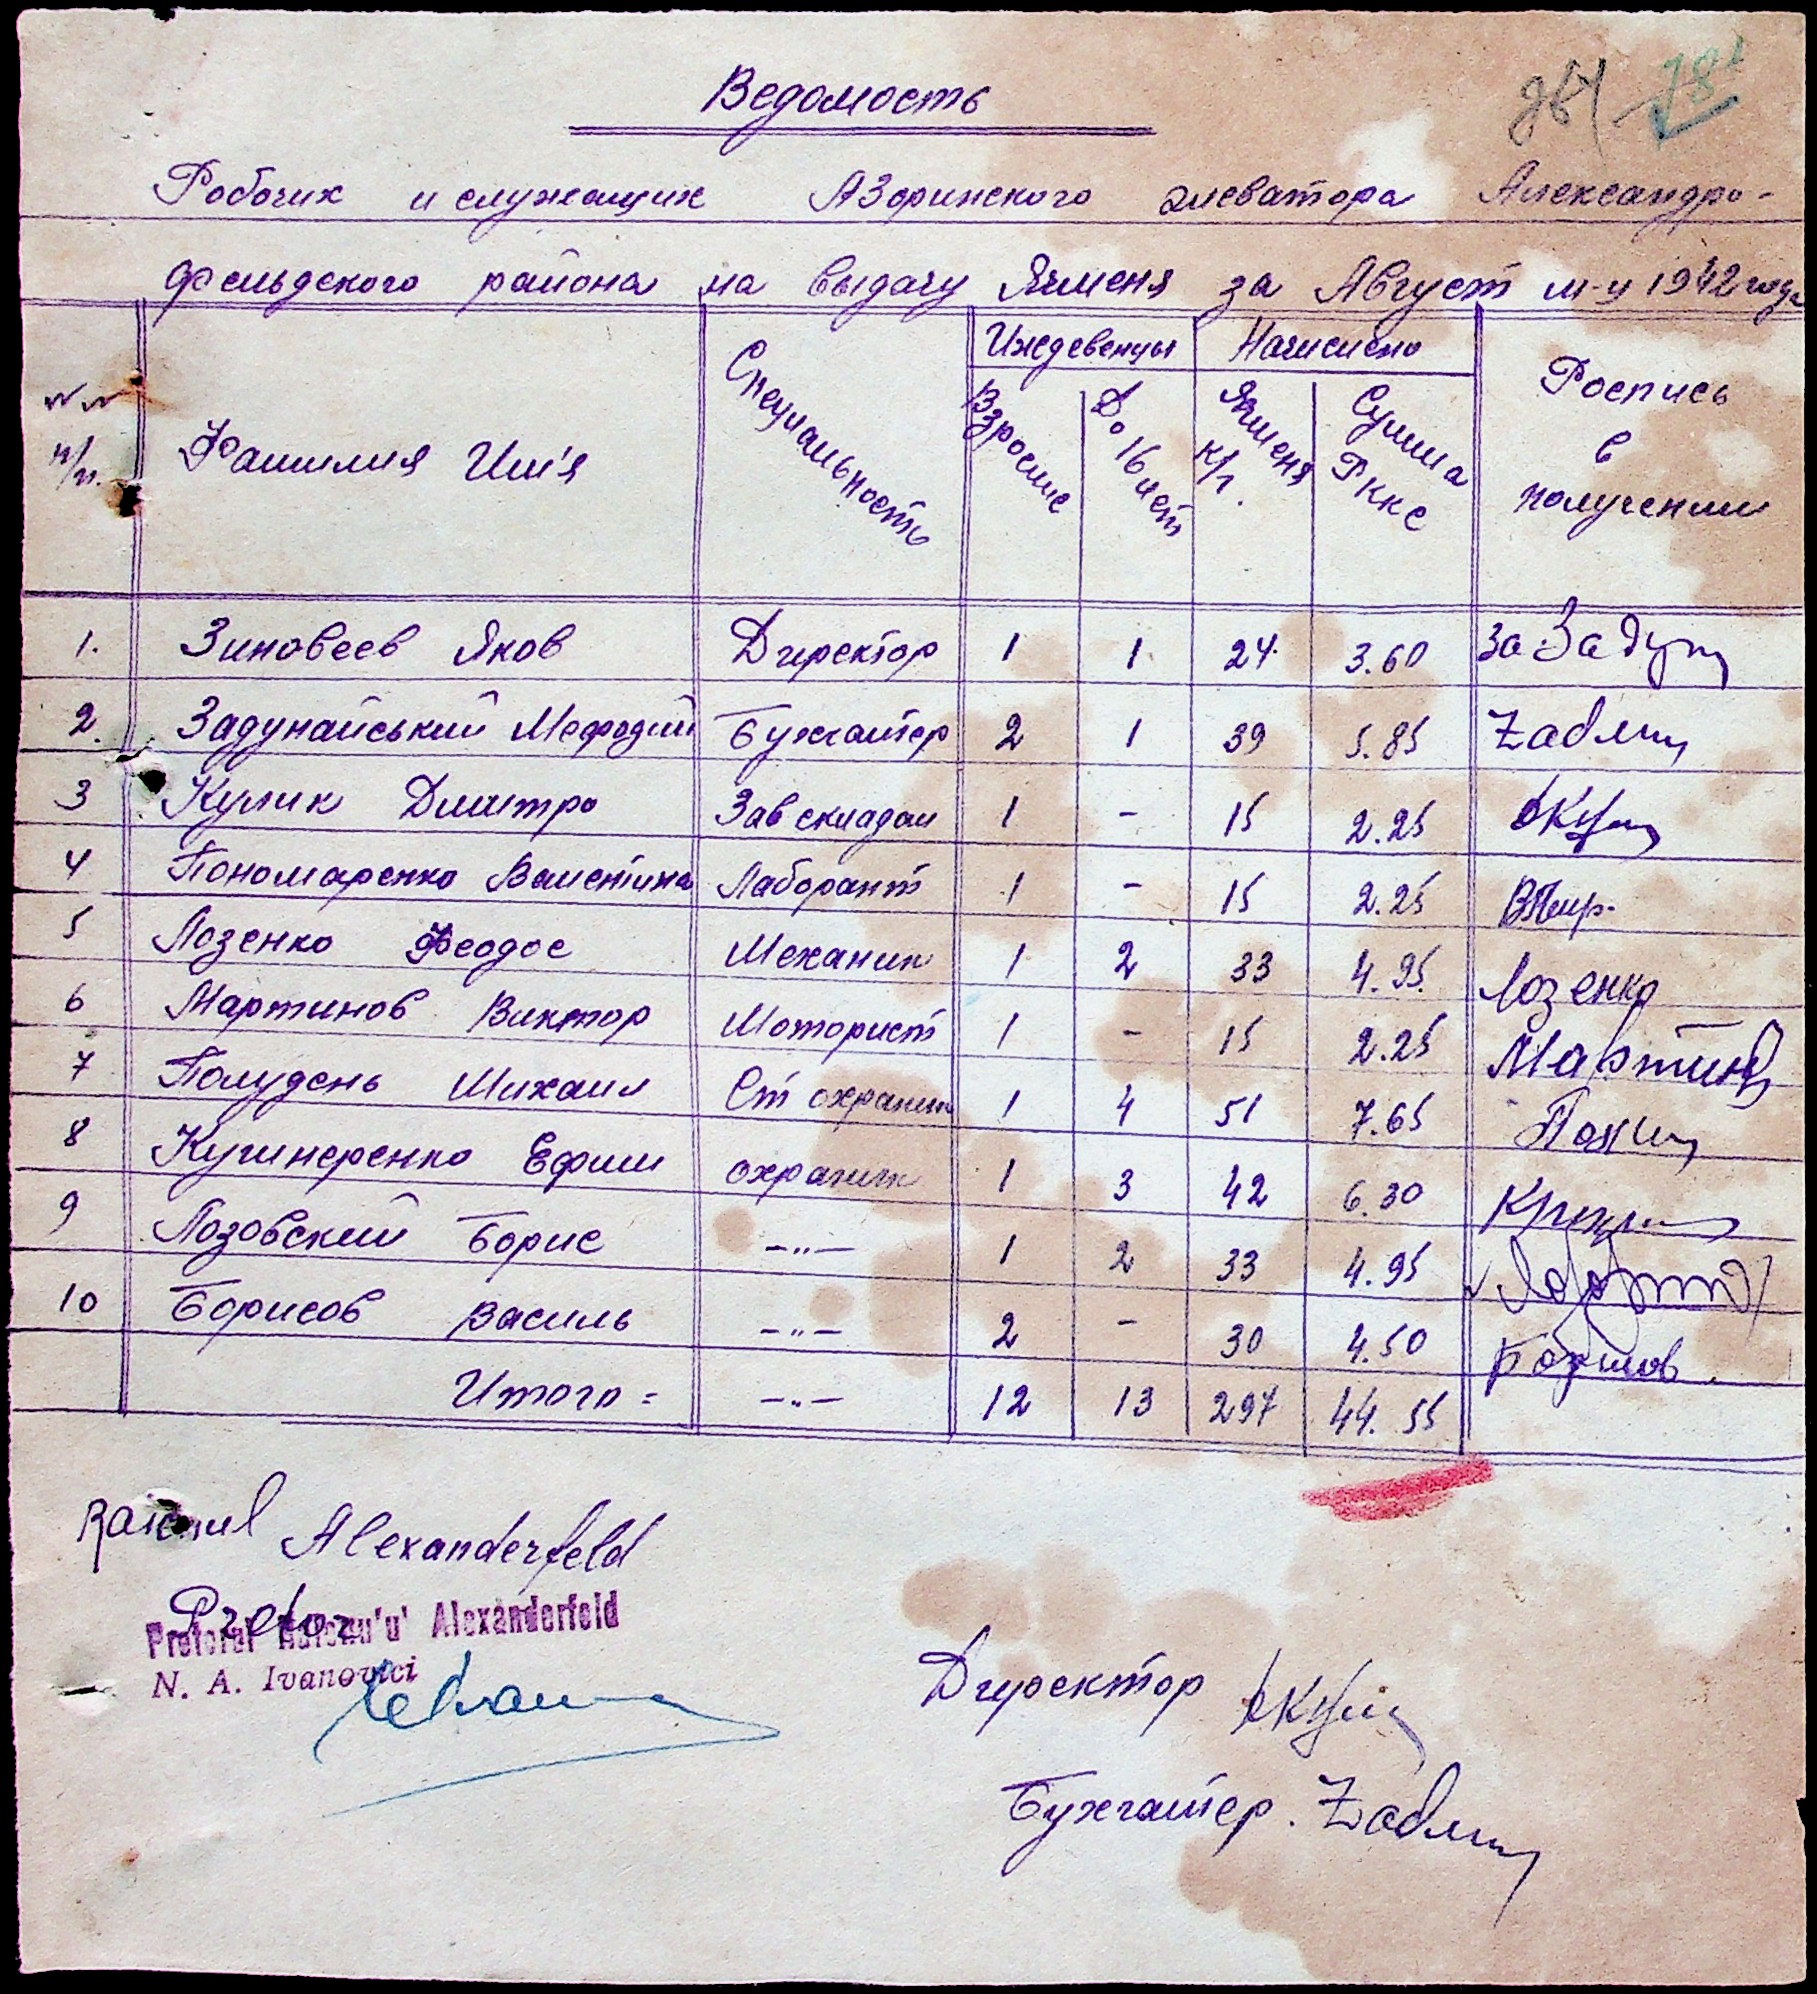 Ведомость
Робочих и служащих АЗоринского элеватора Александро-
фельдского района на выдачу Ячменя за Август м-ц 1942 года
Иждевенцы Начислено
№№ п/п. Фамилия Имʼя Специальность Взрослие До 16 лет Ячменя к/г. Сумма Рккс Роспись в получении
1. Зиновеев Яков Директор 1 1 24 3.60 За Задун
2. Задунайський Мефодий Бухгалтер 2 1 39 5.85
3 Кулик Дмитро Зав складом 1 - 15 2.25
4 Пономаренко Валентина Лаборант 1 - 15 2.25
5 Лозенко Феодос Механик 1 2 33 4.95 Лозенко
6 Мартинов Виктор Моторист 1 - 15 2.25 Мартинов
7 Полудень Михаил Ст охраник 1 4 51 7.65
8 Кушнеренко Ефим охраник 1 3 42 6.30
9 Лозовский Борис -"- 1 2 33 4.95
10 Борисов Василь -"- 2 - 30 4.50 Борисов
Итого = -"- 12 13 297 44.55
Raionul Alexanderfeld
Pretor
Pretorul Raionu'u' Alexanderfeld
N. A. Ivanovici
Директор
Бухгалтер.